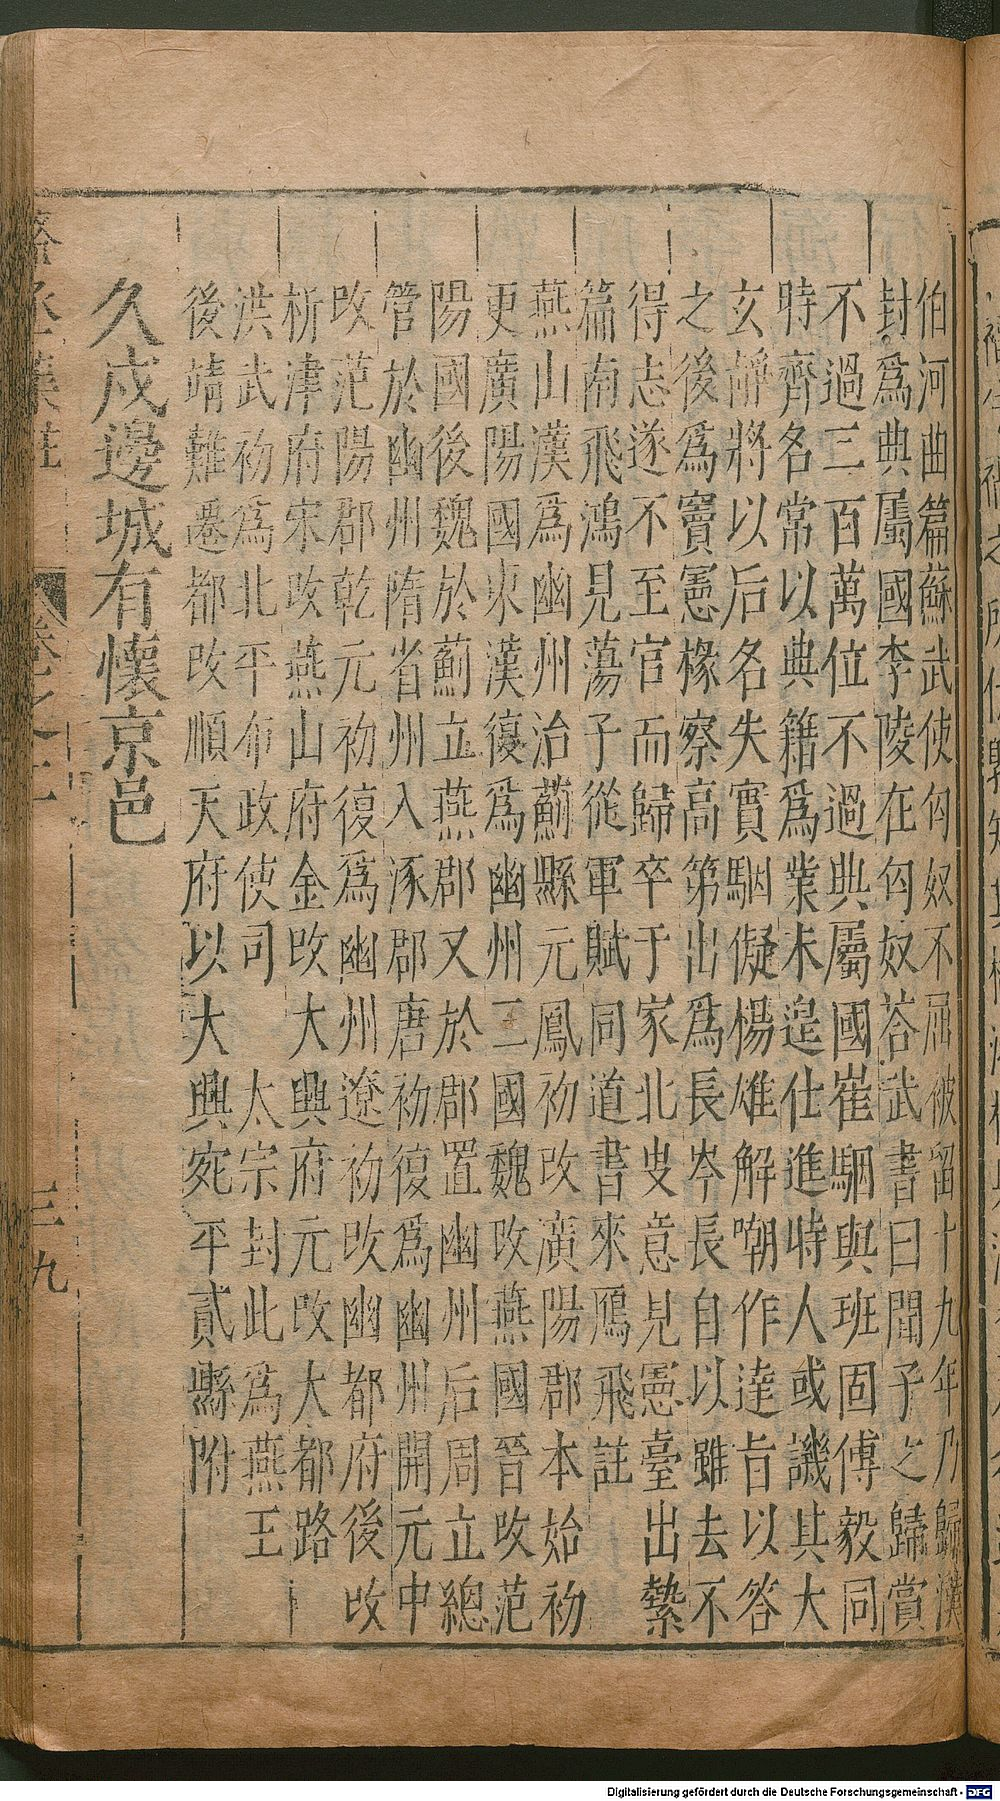 伯河曲篇蘇武使匈奴不屈被留十九年乃歸漢
封爲典屬國李陵在匈奴荅武書曰聞子之歸賞
不過二百萬位不過典屬國崔駰與班固傅毅同
時齊名常以典籍爲業未遑仕進時人或譏其大
玄䩄將以后名失實駰儗楊雄解嘲作達旨以答
之後爲竇憲椽察高第出爲長岑長自以雖去不
得志遂不至官而歸卒于家北叟意見憲臺出縶
篇南飛鴻見蕩子從軍賦同道書來鴈飛註
燕山漢爲幽州治薊縣元鳳初改廣陽郡本始初
更廣陽國東漢復爲幽州三國魏改燕國晉改范
陽國後魏於薊立燕郡又於郡置幽州后周立總
管於幽州隋省州入涿郡唐初復爲幽州開元中
改范陽郡乾元初復爲幽州遼初改幽都府後改
析津府宋改燕山府金改大興府元改大都路
洪武初爲北平布政使司 太宗封此爲燕王
後靖難遷都改順天府以大興宛平貳縣附
久戍邊城有懷京邑
卷之二
三九
Digitalisierung gefördert durch die Deutsche Forschungsgemeinschaft - DFG